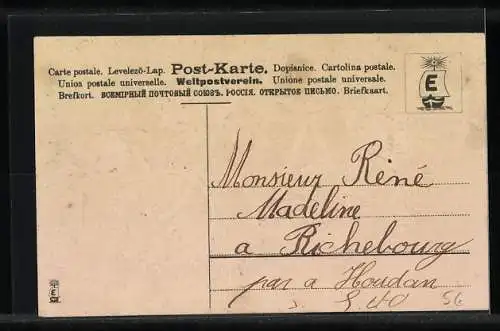 Carte postale. Levelező-Lap. Post-Karte. Dopisnice. Cartolina postale.
Union postale universelle. Weltpostverein. Unione postale universale.
Brefkort. ВСЕМІРНЫЙ ПОЧТОВЫЙ СОЮЗЪ. РОССІЯ. ОТКРЫТОЕ ПИСЬМО. Briefkaart.
E
Monsieur Réné
Madeline
a Richebourg
par a Houdan
S. &O
56
E